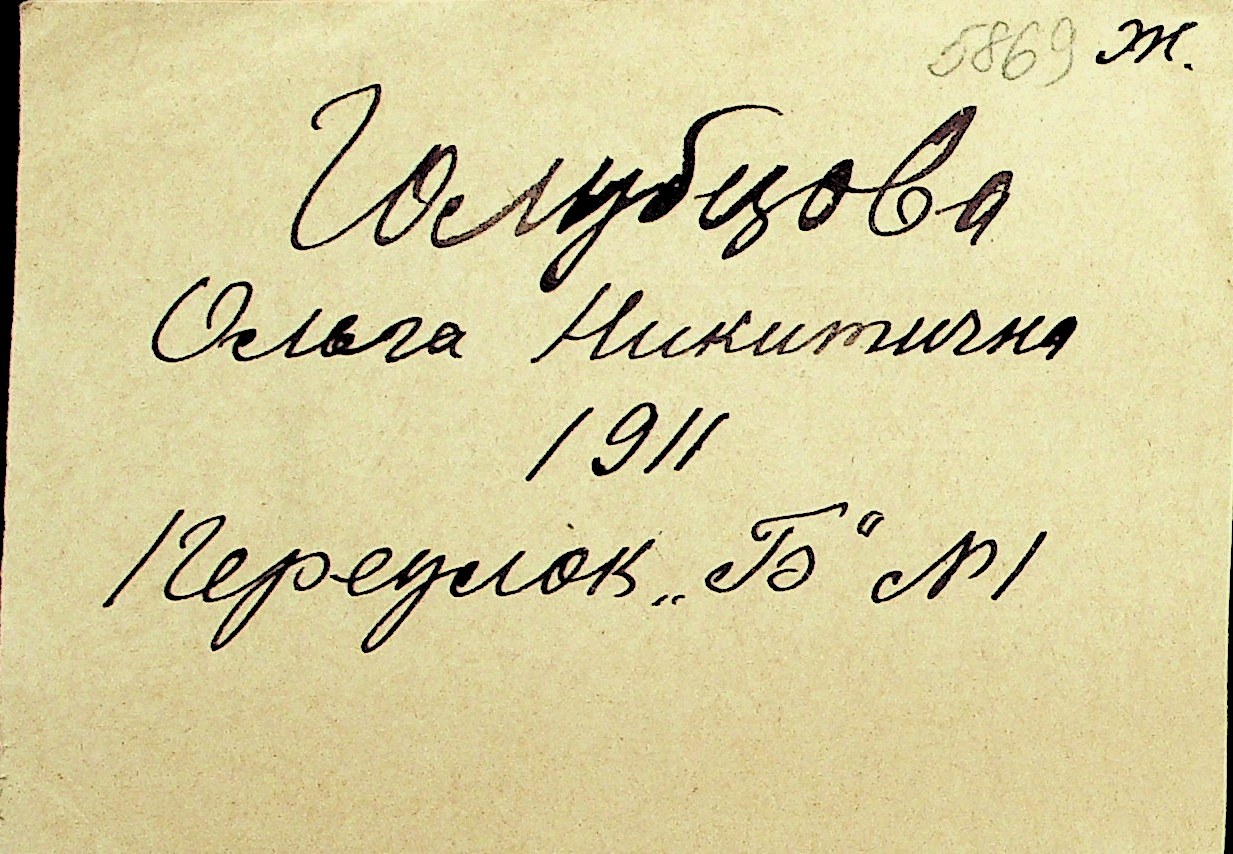 5869 Ж.
Голубцова
Ольга Никитична
1911
Переулок „Б“ №1